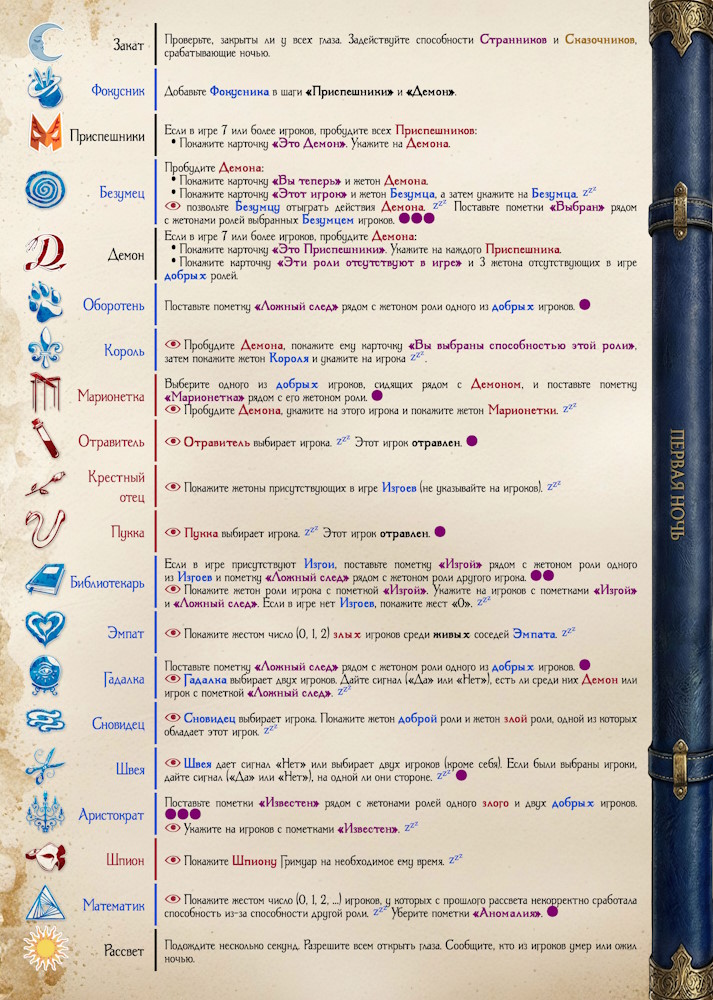 Закат
Проверьте, закрыты ли у всех глаза. Задействуйте способности Странников и Сказочников,
срабатывающие ночью.
Фокусник
Добавьте Фокусника в шаги «Приспешники» и «Демон».
Приспешники
Если в игре 7 или более игроков, пробудите всех Приспешников:
• Покажите карточку «Это Демон». Укажите на Демона.
Безумец
Пробудите Демона:
• Покажите карточку «Вы теперь» и жетон Демона.
• Покажите карточку «Этот игрок» и жетон Безумца, а затем укажите на Безумца. zzz
позвольте Безумцу отыграть действия Демона. zzz Поставьте пометки «Выбран» рядом
с жетонами ролей выбранных Безумцем игроков.
Демон
Если в игре 7 или более игроков, пробудите Демона:
• Покажите карточку «Это Приспешники». Укажите на каждого Приспешника.
• Покажите карточку «Эти роли отсутствуют в игре» и 3 жетона отсутствующих в игре
добрых ролей.
Оборотень
Поставьте пометку «Ложный след» рядом с жетоном роли одного из добрых игроков.
Король
Пробудите Демона, покажите ему карточку «Вы выбраны способностью этой роли»,
затем покажите жетон Короля и укажите на игрока zzz.
Марионетка
Выберите одного из добрых игроков, сидящих рядом с Демоном, и поставьте пометку
«Марионетка» рядом с его жетоном роли.
Пробудите Демона, укажите на этого игрока и покажите жетон Марионетки. zzz
Отравитель
Отравитель выбирает игрока. zzz Этот игрок отравлен.
Крестный
отец
Покажите жетоны присутствующих в игре Изгоев (не указывайте на игроков). zzz
Пукка
Пукка выбирает игрока. zzz Этот игрок отравлен.
Библиотекарь
Если в игре присутствуют Изгои, поставьте пометку «Изгой» рядом с жетоном роли одного
из Изгоев и пометку «Ложный след» рядом с жетоном роли другого игрока.
Покажите жетон роли игрока с пометкой «Изгой». Укажите на игроков с пометками «Изгой»
и «Ложный след». Если в игре нет Изгоев, покажите жест «0». zzz
Эмпат
Покажите жестом число (0, 1, 2) злых игроков среди живых соседей Эмпата. zzz
Гадалка
Поставьте пометку «Ложный след» рядом с жетоном роли одного из добрых игроков.
Гадалка выбирает двух игроков. Дайте сигнал («Да» или «Нет»), есть ли среди них Демон или
игрок с пометкой «Ложный след». zzz
Сновидец
Сновидец выбирает игрока. Покажите жетон доброй роли и жетон злой роли, одной из которых
обладает этот игрок. zzz
Швея
Швея дает сигнал «Нет» или выбирает двух игроков (кроме себя). Если были выбраны игроки,
дайте сигнал («Да» или «Нет»), на одной ли они стороне. zzz
Аристократ
Поставьте пометки «Известен» рядом с жетонами ролей одного злого и двух добрых игроков.
Укажите на игроков с пометками «Известен». zzz
Шпион
Покажите Шпиону Гримуар на необходимое ему время. zzz
Математик
Покажите жестом число (0, 1, 2, ...) игроков, у которых с прошлого рассвета некорректно сработала
способность из-за способности другой роли. zzz Уберите пометки «Аномалия».
Рассвет
Подождите несколько секунд. Разрешите всем открыть глаза. Сообщите, кто из игроков умер или ожил
ночью.
ПЕРВАЯ НОЧЬ